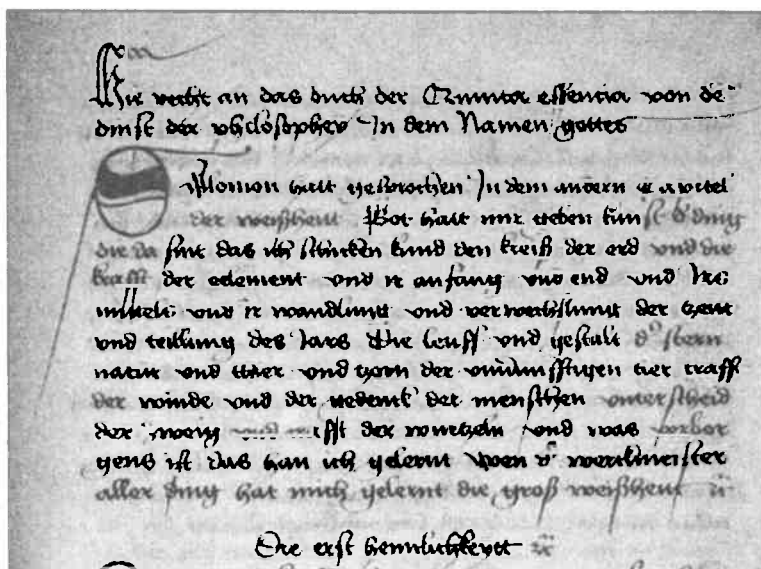 Hie vacht an das buch der Quinta essencia von de
dinst der philosophey In dem Namen gottes
Salomon hatt gesprochen In dem andern capitel
der weißheut Got hatt mir geben kunst d' ding
die da sint das ich kund den kreiß der erd und die
krafft der element und ir anfang und end und ire
mittel und ir wandlung und verwechslung der
und teillung des Jars die leuff und gestalt d' stern
natur und und zorn der unvernunfftigen tier crafft
der winde und der gedenck der menschen unterscheid
der und der wurtzeln und was verbor
gens ist das han ich gelernt wen d' werckmeister
aller ding hat mich gelernt die groß weißheut
Die erst heimlichkeytt